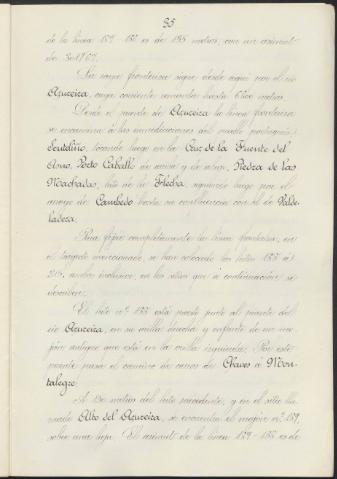 35
de la línea 187-188 es de 185 metros, con un azimut
de
La raya fronteriza sigue desde aquí por el río
Azureira, cuya corriente remonta hasta metros.
Desde el puente de Azureira la línea fronteriza
se encamina á las inmediaciones del pueblo portugués
Sendelho, tocando luego en la Cruz de la Fuente del
Asno, Porto Caballo de and de Piedra de las
Machadas, hito de la Flecha, siguiendo luego por el
arroyo de Cambedo hasta su confluencia con el de Valde-
ladera.
Para fijar completamente la línea fronteriza, en
el trayecto mencionado, se han colocado los hitos 188 á
205, ambos inclusive, en los sitios que á continuación se
describen:
El hito nº 188 está puesto junto al puente del
río Azureira, en su orilla derecha y enfrente de un mo-
jón antiguo que está en la orilla izquierda. Por este
puente pasa el camino de carros de Chaves á Mon-
talegre.
A metros del hito precedente, y en el sitio lla-
mado Alto del Azureira, se encuentra el mojón nº 189,
sobre una laja. El azimut de la línea 189-188 es de